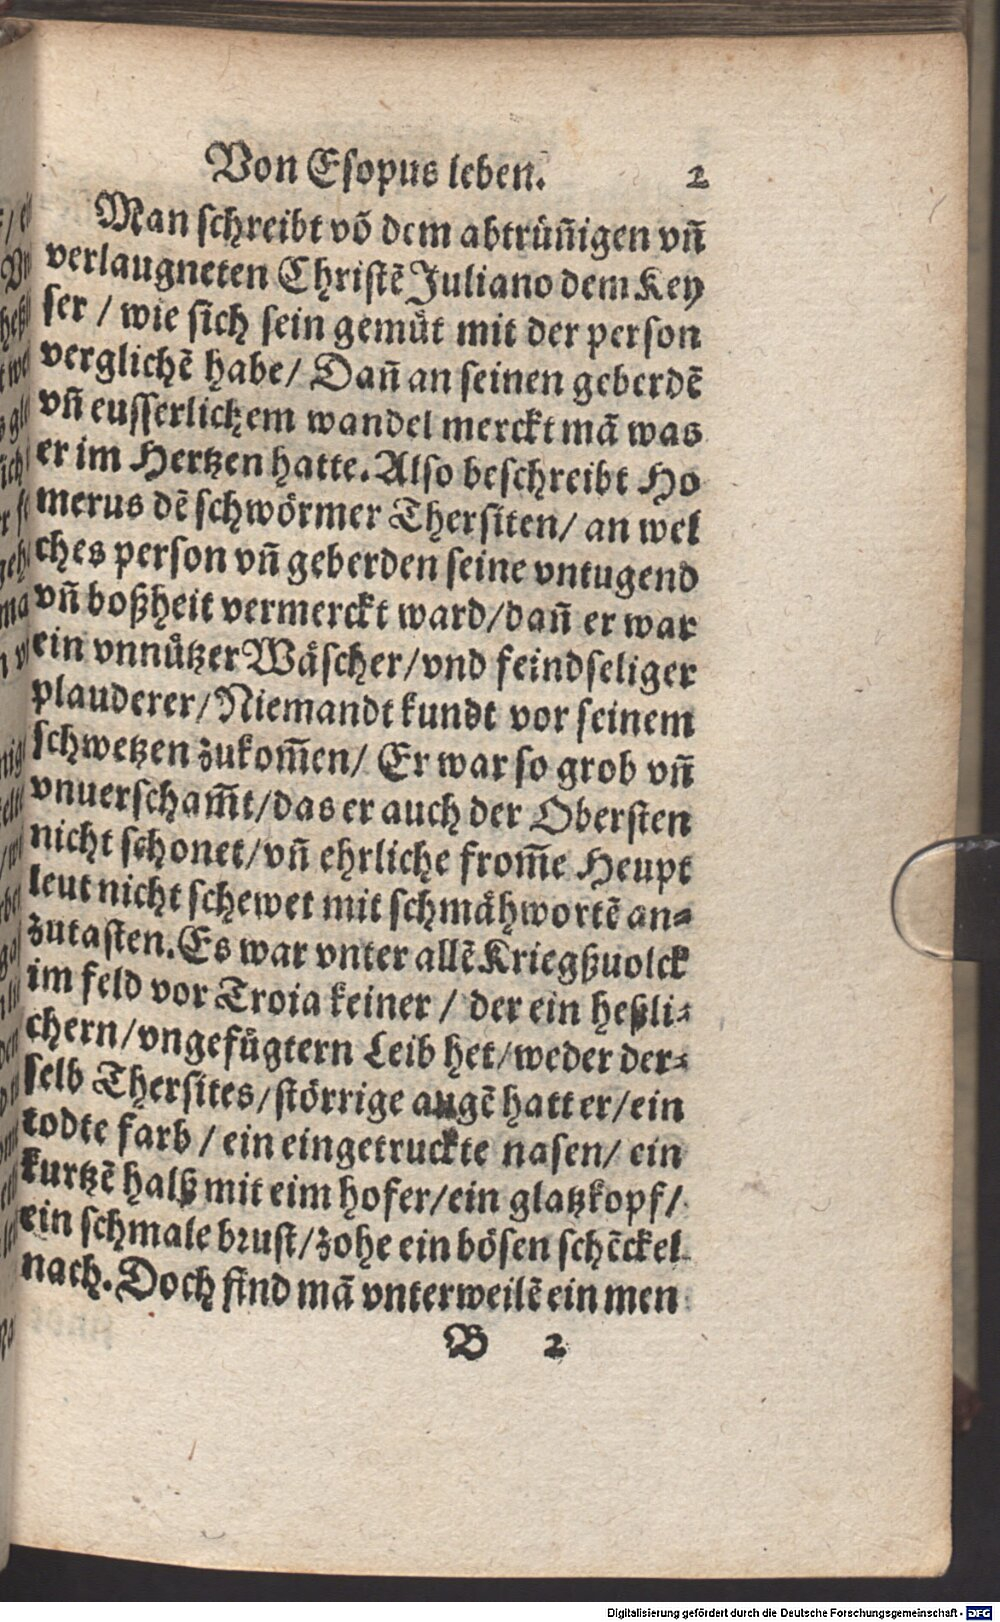 Von Esopus leben. 2
Man schreibt võ dem abtrüñigen vñ
verlaugneten Christẽ Juliano dem Key
ser / wie sich sein gemuͤt mit der person
verglichẽ habe/ Dañ an seinen geberdẽ
vñ eusserlichem wandel merckt mã was
er im Hertzen hatte. Also beschreibt Ho
merus dẽ schwoͤrmer Thersiten/ an wel
ches person vñ geberden seine vntugend
vñ boßheit vermerckt ward/dañ er war
ein vnnuͤtzer Waͤscher/vnd feindseliger
plauderer/Niemandt kundt vor seinem
schwetzen zukom̃en/ Er war so grob vñ
vnuerscham̃t/das er auch der Obersten
nicht schonet/vñ ehrliche from̃e Heupt
leut nicht schewet mit schmaͤhwortẽ an⸗
zutasten. Es war vnter allẽ Kriegßuolck
im feld vor Troia keiner / der ein heßli⸗
chern/vngefuͤgtern Leib het/weder der⸗
selb Thersites/stoͤrrige augẽ hatt er/ein
todte farb / ein eingetruckte nasen/ ein
kurtzẽ halß mit eim hofer/ein glatzkopf/
ein schmale brust/zohe ein boͤsen schẽckel
nach. Doch find mã vnterweilẽ ein men
B 2
Digitalisierung gefördert durch die Deutsche Forschungsgemeinschaft - DFG